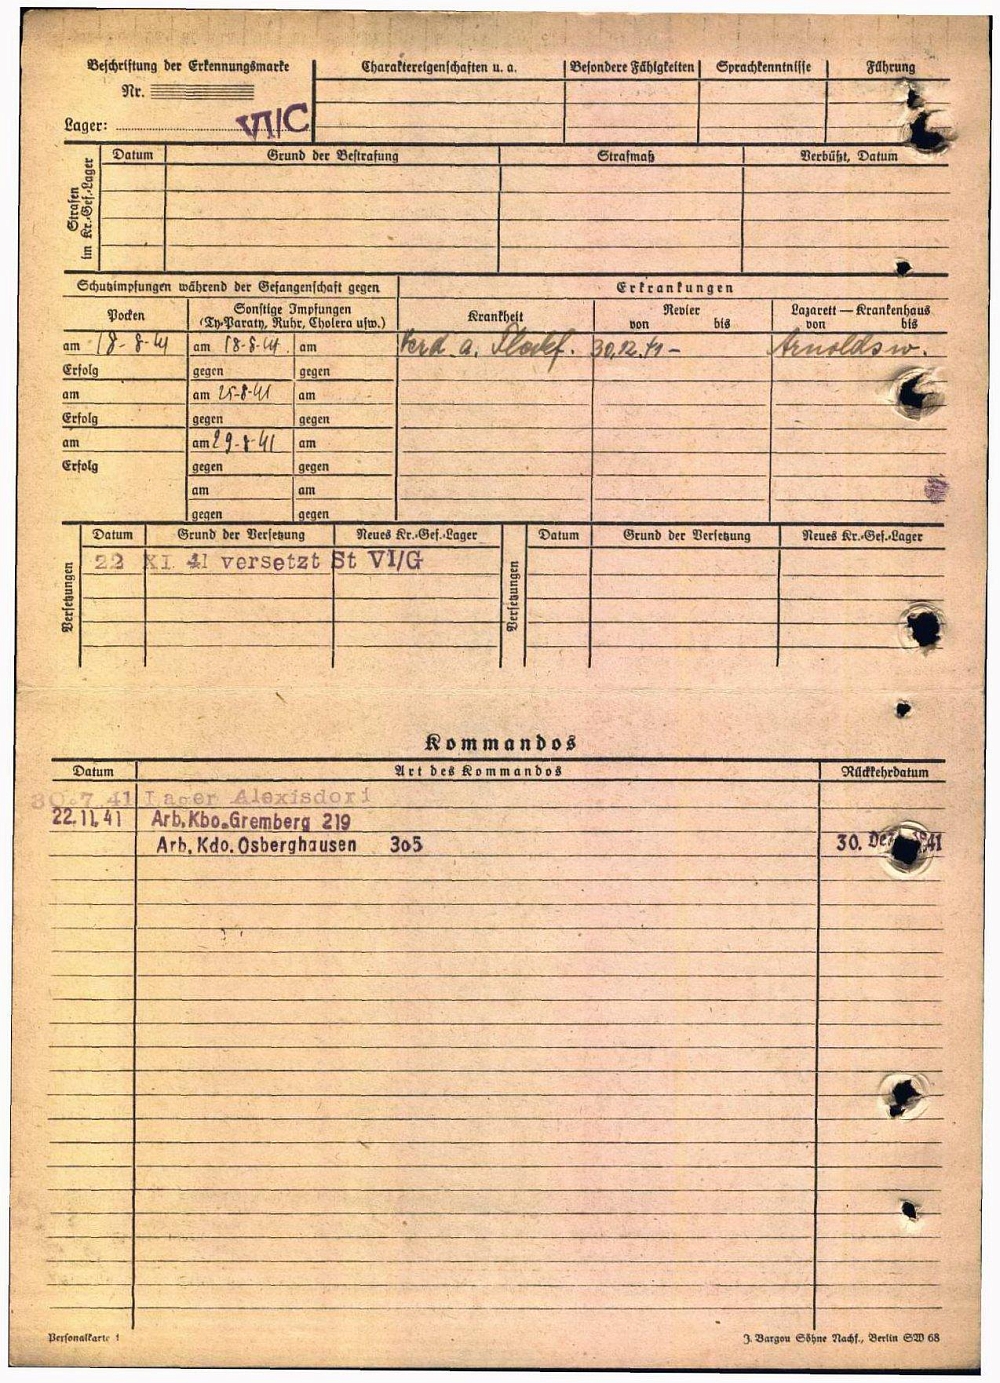 Beschriftung der Erkennungsmarke Charaktereigenschaften u. a. Besondere Fähigkeiten Sprachkenntnisse Führung
Nr.
Lager: VI/C
Strafen im Kr.-Gef.-Lager
Datum Grund der Bestrafung Strafmaß Verbüßt, Datum
Schutzimpfungen während der Gefangenschaft gegen Erkrankungen
Pocken Sonstige Impfungen (Ty-Paraty, Ruhr, Cholera usw.) Krankheit Revier von bis Lazarett — Krankenhaus von bis
am 18-8-41 am 18-8-41. am Verd. a. 30.12.41 - Arnoldsw.
Erfolg gegen gegen
am am 25-8-41 am
Erfolg gegen gegen
am am 29-8-41 am
Erfolg gegen gegen
am am
gegen gegen
Versetzungen
Datum Grund der Versetzung Neues Kr.-Gef.-Lager
22 XI 41 versetzt St VI/G
Versetzungen
Datum Grund der Versetzung Neues Kr.-Gef.-Lager
Kommandos
Datum Art des Kommandos Rückkehrdatum
30.7 41 Lager Alexisdorf
22.11.41 Arb.Kdo.Gremberg 219
Arb.Kdo.Osberghausen 305 30. Dez. 1941
Personalkarte 1 J. Bargou Söhne Nachf., Berlin SW 68